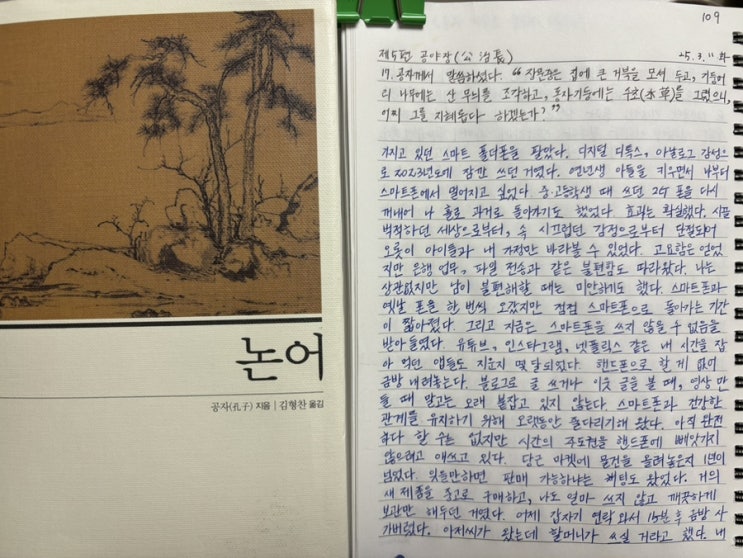 논어
공자(孔子) 지음 | 김형찬 옮김
109
제5편 공야장(公冶長) 25.3.11 화
17. 공자께서 말씀하셨다. "장문중은 집에 큰 거북을 모셔 두고, 기둥머
리 나무에는 산 무늬를 조각하고, 동자기둥에는 수초(水草)를 그렸으니,
어찌 그를 지혜롭다 하겠는가?"
가지고 있던 스마트 폴더폰을 팔았다. 디지털 디톡스, 아날로그 감성으
로 2023년도에 잠깐 쓰던 거였다. 연년생 아들을 키우면서 나부터
스마트폰에서 멀어지고 싶었다. 중·고등학생 때 쓰던 2G 폰을 다시
꺼내어 나 홀로 과거로 돌아가기도 했었다. 효과는 확실했다. 시끌
벅적하던 세상으로부터, 속 시끄럽던 감정으로부터 단절되어
오롯이 아이들과 내 가정만 바라볼 수 있었다. 고요함은 얻었
지만 은행 업무, 파일 전송과 같은 불편함도 따라왔다. 나는
상관없지만 남이 불편해할 때는 미안하기도 했다. 스마트폰과
옛날 폰을 한 번씩 오갔지만 점점 스마트폰으로 돌아가는 기간
이 짧아졌다. 그리고 지금은 스마트폰을 쓰지 않을 수 없음을
받아들였다. 유튜브, 인스타그램, 넷플릭스 같은 내 시간을 잡
아 먹던 앱들도 지운지 몇 달 되었다. 핸드폰으로 할 게 없어
금방 내려놓는다. 블로그로 글 쓰거나 이웃 글을 볼 때, 영상 만
들 때 말고는 오래 붙잡고 있지 않는다. 스마트폰과 건강한
관계를 유지하기 위해 오랫동안 줄다리기해 왔다. 아직 완전
하다 할 수는 없지만 시간의 주도권을 핸드폰에 빼앗기지
않으려고 애쓰고 있다. 당근 마켓에 물건을 올려놓은지 1년이
넘었다. 잊을만하면 판매 가능하냐는 채팅도 왔었다. 거의
새 제품을 중고로 구매하고, 나도 얼마 쓰지 않고 깨끗하게
보관만 해두던 거였다. 어제 갑자기 연락 와서 15분 후 금방 사
가버렸다. 아저씨가 왔는데 할머니가 쓰실 거라고 했다. 내